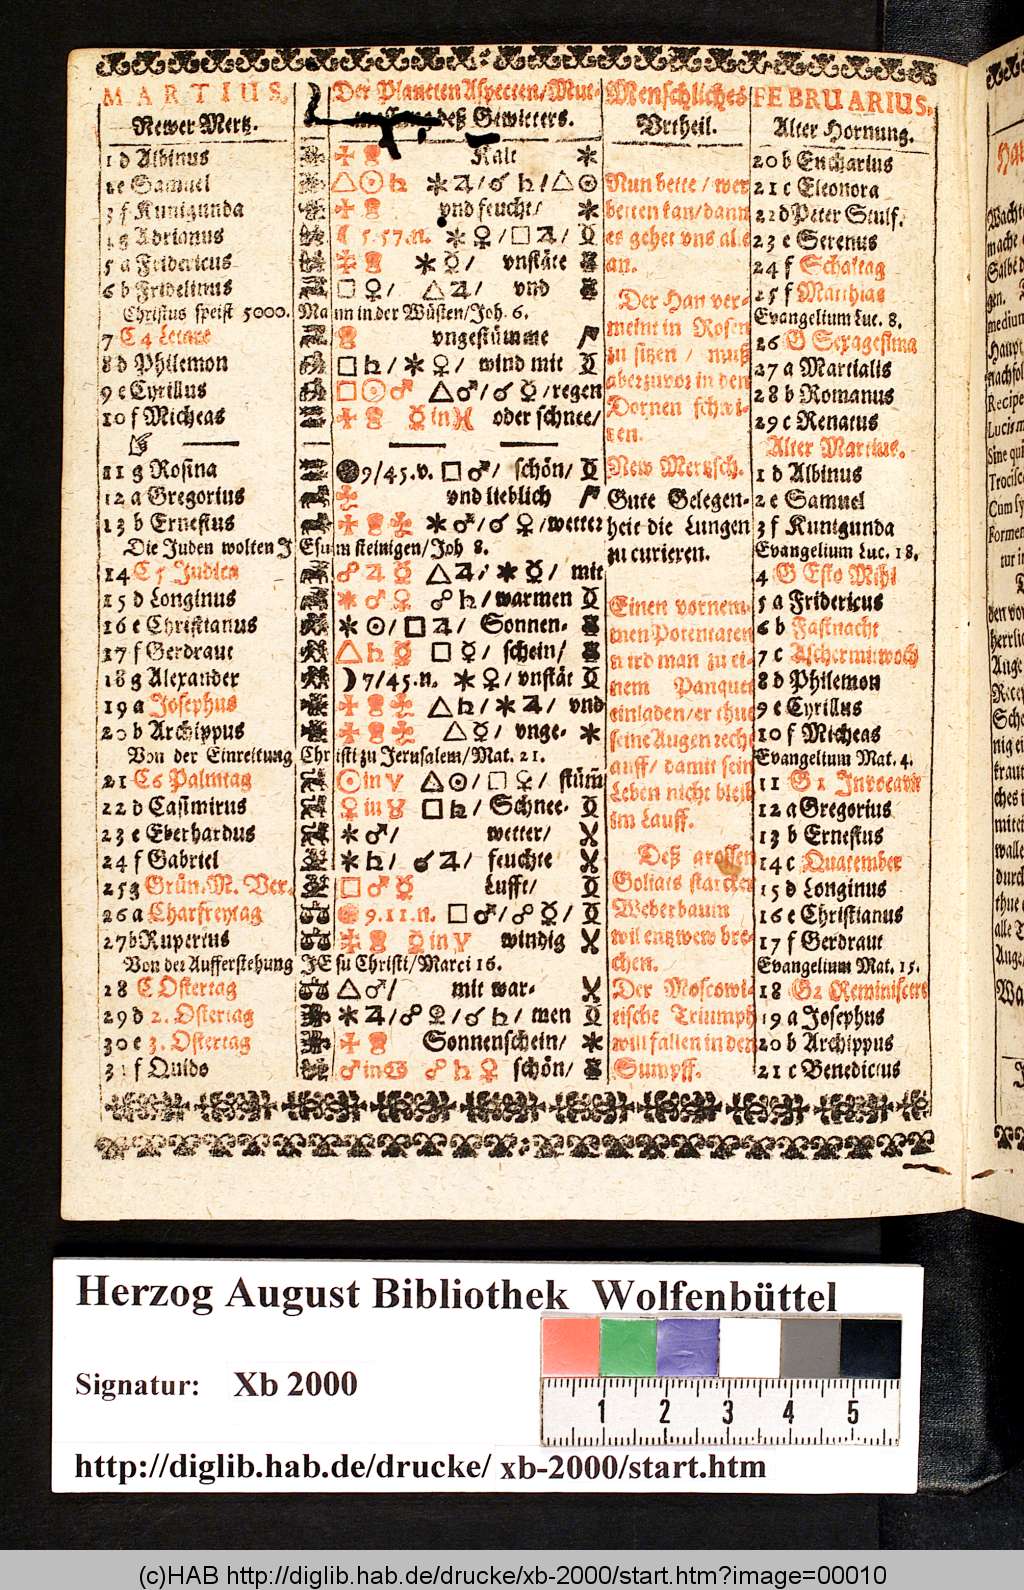 MARTIUS.
Newer Mertz.
1 d Albinus
2 e Samuel
3 f Kunigunda
4 g Adrianus
5 a Fridericus
6 b Fridelinus
Christus speist 5000. Mann in der Wüsten/Joh. 6.
7 C 4 Letare
8 d Philemon
9 e Cyrillus
10 f Micheas
11 g Rosina
12 a Gregorius
13 b Ernestus
Die Juden wolten JEsum steinigen/Joh 8.
14 C 5 Judica
15 d Longinus
16 e Christianus
17 f Gerdraut
18 g Alexander
19 a Josephus
20 b Archippus
Von der Einreitung Christi zu Jerusalem/Mat. 21.
21 C 6 Palmtag
22 d Casimirus
23 e Eberhardus
24 f Gabriel
25 g Grün. M. Ver.
26 a Charfreytag
27 b Rupertus
Von der Aufferstehung JEsu Christi/Marci 16.
28 C Ostertag
29 d 2. Ostertag
30 e 3. Ostertag
31 f Quido
Der Planeten Aspecten/Mut-
deß Gewitters.
Kalt ⚹
△☉♄ ⚹♃/☌♄/△☉
vnd feucht/ ⚹
☾ 5.57.n. ⚹♀/□♃/
⚹☿/ vnstäte
□♀/ △♃/ vnd
vngestümme
□♄/⚹♀/ wind mit
□☉♂ △♂/☌☿/regen
☿ in ♓ oder schnee/
9/45.v. □♂/ schön/
vnd lieblich
⚹♂/☌♀/wetter
☍♃☿ △♃/⚹☿/ mit
⚹♂♀ ☍♄/warmen
⚹☉/□♃/ Sonnen-
△♄☿ □☿/ schein/
☽ 7/45.n. ⚹♀/vnstät
△♄/⚹♃/ vnd
△☿/ vnge- ⚹
☉ in ♈ △☉/□♀/ stüm
♀ in ♉ □♄/ Schnee-
⚹♂/ wetter/
⚹♄/ ☌♃/ feuchte
□♂☿ Lufft/
9.11.n. □♂/☍☿/
☿ in ♈ windig
△♂/ mit war-
⚹♃/☍☿/☌♄/ men
Sonnenschein/ ⚹
♂ in ♋ ☍♄♀ schön/
Menschliches
Vrtheil.
Nun bette/wer
betten kan/dann
es gehet vns alle
an.
Der Han ver-
meint in Rosen
zu sitzen / muß
aber zuvor in den
Dornen schwi-
tzen.
New Mertzsch.
Gute Gelegen-
heit die Lungen
zu curieren.
Einen vornem-
men Potentaten
wird man zu ei-
nem Panquet
einladen/er thue
seine Augen recht
auff/damit sein
Leben nicht bleib
im Lauff.
Deß grossen
Goliats starcker
Weberbaum
wil entzwey bre-
chen.
Der Moscowi-
tische Triumph
will fallen in den
Sumpff.
FEBRUARIUS.
Alter Hornung.
20 b Eucharius
21 c Eleonora
22 d Peter Stulf.
23 e Serenus
24 f Schaltag
25 f Matthias
Evangelium Luc. 8.
26 G Sexagesima
27 a Martialis
28 b Romanus
29 c Renatus
Alter Martius.
1 d Albinus
2 e Samuel
3 f Kunigunda
Evangelium Luc. 18.
4 G Esto Mihi
5 a Fridericus
6 b Fastnacht
7 c Aschermitwoch
8 d Philemon
9 e Cyrillus
10 f Micheas
Evangelium Mat. 4.
11 G 1 Invocavit
12 a Gregorius
13 b Ernestus
14 c Quatember
15 d Longinus
16 e Christianus
17 f Gerdraut
Evangelium Mat. 15.
18 G 2 Reminiscere
19 a Josephus
20 b Archippus
21 c Benedictus
Herzog August Bibliothek Wolfenbüttel
Signatur: Xb 2000
1 2 3 4 5
http://diglib.hab.de/drucke/ xb-2000/start.htm
(c)HAB http://diglib.hab.de/drucke/xb-2000/start.htm?image=00010